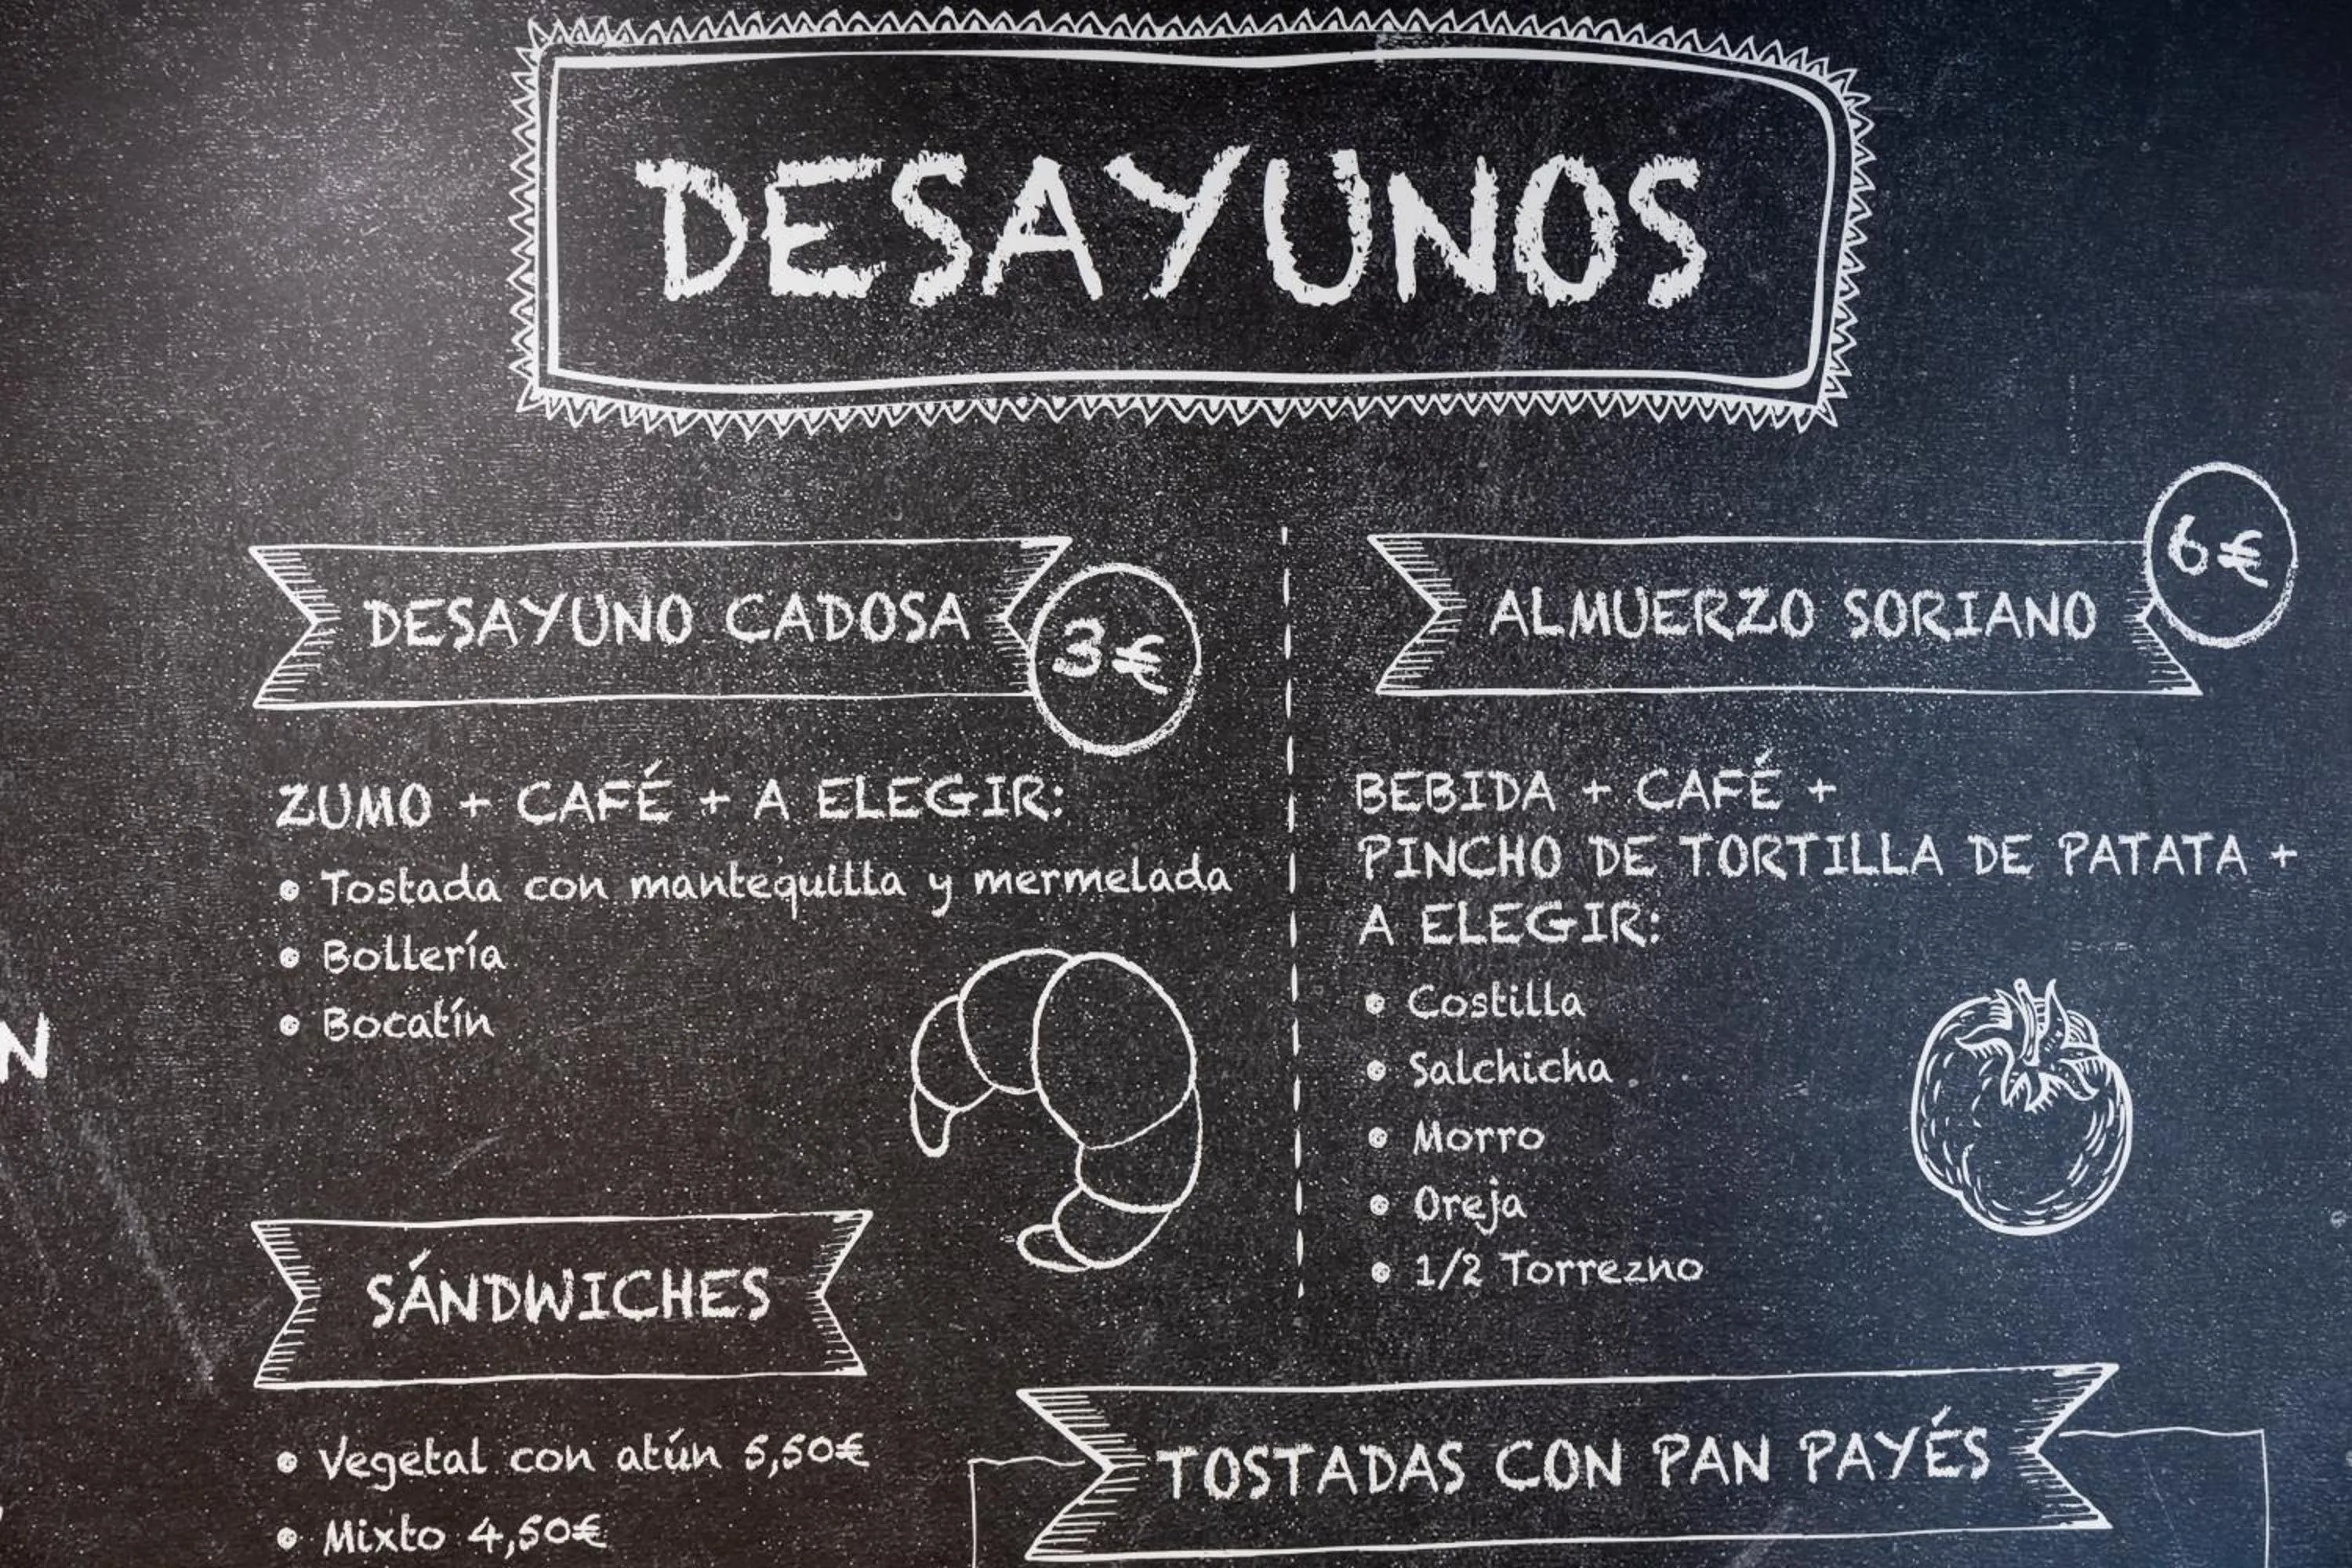 DESAYUNOS
DESAYUNO CADOSA
3€
ZUMO + CAFÉ + A ELEGIR:
• Tostada con mantequilla y mermelada
• Bollería
• Bocatín
ALMUERZO SORIANO
6€
BEBIDA + CAFÉ +
PINCHO DE TORTILLA DE PATATA +
A ELEGIR:
• Costilla
• Salchicha
• Morro
• Oreja
• 1/2 Torrezno
SÁNDWICHES
• Vegetal con atún 5,50€
• Mixto 4,50€
TOSTADAS CON PAN PAYÉS
N